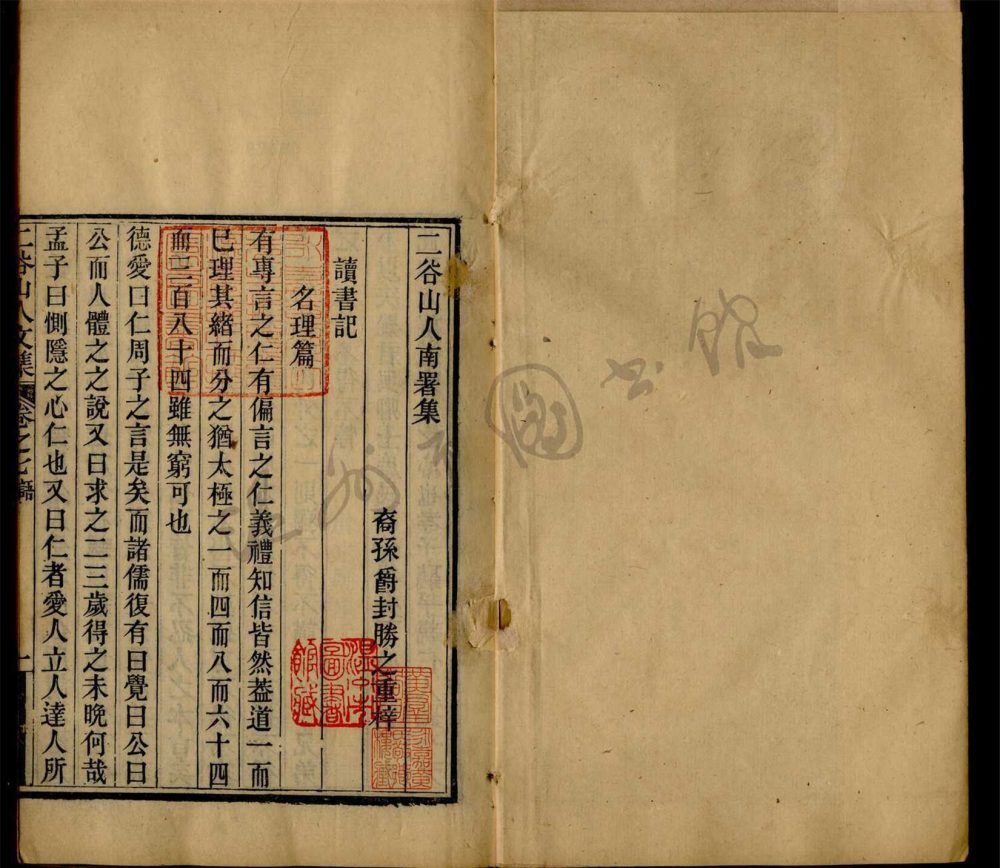 二谷山人南署集
裔孫爵封勝之重梓
讀書記
名理篇
有專言之仁有偏言之仁義禮知信皆然葢道一而
巳理其緒而分之猶太極之一而四而八而六十四
而三百八十四雖無窮可也
德愛曰仁周子之言是矣而諸儒復有曰覺曰公曰
公而人體之之說又曰求之二三歲得之未晚何哉
孟子曰惻隱之心仁也又曰仁者愛人立人達人所
二谷山人文集
卷之七
溫州市圖書館藏
圖書館